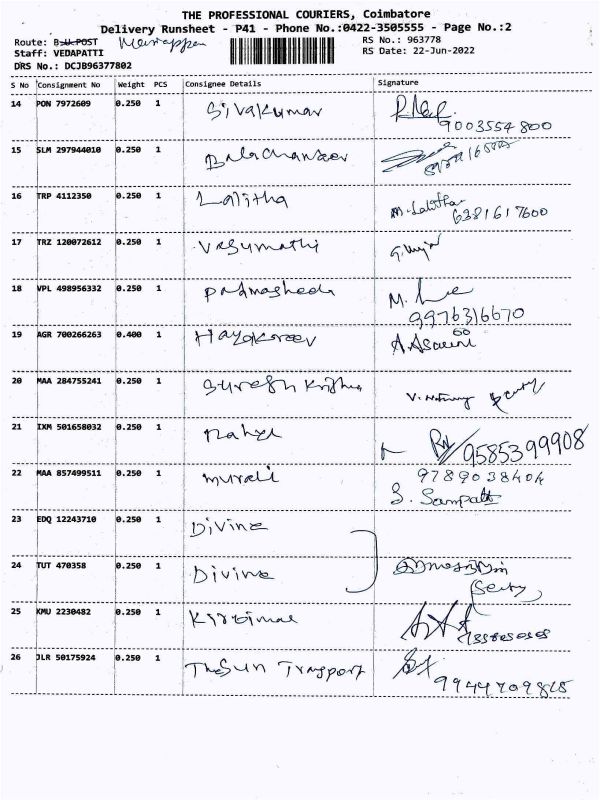 THE PROFESSIONAL COURIERS, Coimbatore
Delivery Runsheet - P41 - Phone No.:0422-3505555 - Page No.:2
Route: B.U.POST
RS No.: 963778
Staff: VEDAPATTI
RS Date: 22-Jun-2022
DRS No.: DCJB96377802
S No Consignment No Weight PCS Consignee Details Signature
14 PON 7972609 0.250 1 Sivakumar
9003554800
15 SLM 297944010 0.250 1 Balachander
16 TRP 4112350 0.250 1 Lalitha M. Lalitha
6381617600
17 TRZ 120072612 0.250 1 Vasumathi
18 VPL 498956332 0.250 1 M.
9976316670
19 AGR 700266263 0.400 1
20 MAA 284755241 0.250 1 Suresh Krishna
21 IXM 501658032 0.250 1 9585399908
22 MAA 857499511 0.250 1 Murali 9789038404
S. Sampath
23 EDQ 12243710 0.250 1 Divine
24 TUT 470358 0.250 1 Divine
25 KMU 2230482 0.250 1
26 JLR 50175924 0.250 1 The Sun Transport